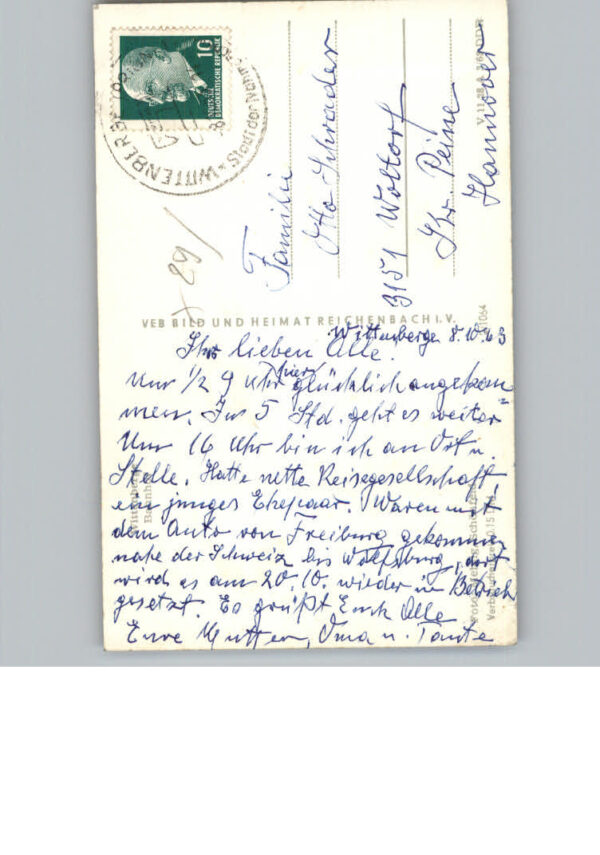 10
DEUTSCHE
DEMOKRATISCHE REPUBLIK
WITTENBERGE
Familie
Otto Schrader
3151 Woltorf
Kr. Peine
Hannover
+ 89 /
VEB BILD UND HEIMAT REICHENBACH I. V.
Wittenberge 8.10.63
Ihr lieben Alle.
Um 1/2 9 Uhr hier glücklich angekom=
men. In 5 Std. geht es weiter
Um 16 Uhr bin ich an Ort u.
Stelle. Hatte nette Reisegesellschaft,
ein junges Ehepaar. Waren mit
dem Auto von Freiburg gekommen
nahe der Schweiz bis Wolfsburg, dort
wird es am 20.10. wieder in Betrieb
gesetzt. Es grüßt Euch Alle
Eure Mutter, Oma u. Tante
Wittenberge